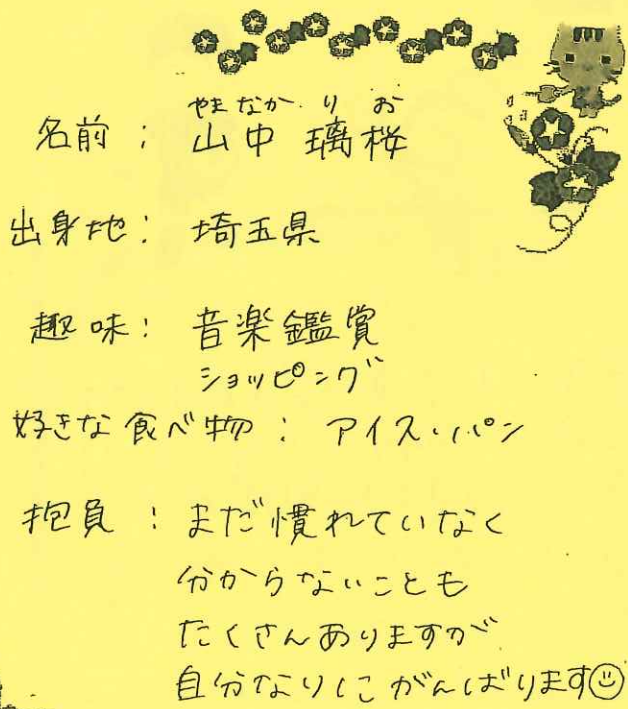 やまなか りお
名前： 山中 璃桜
出身地： 埼玉県
趣味： 音楽鑑賞
ショッピング
好きな食べ物： アイス・パン
抱負： まだ慣れていなく
分からないことも
たくさんありますが
自分なりにがんばります☺